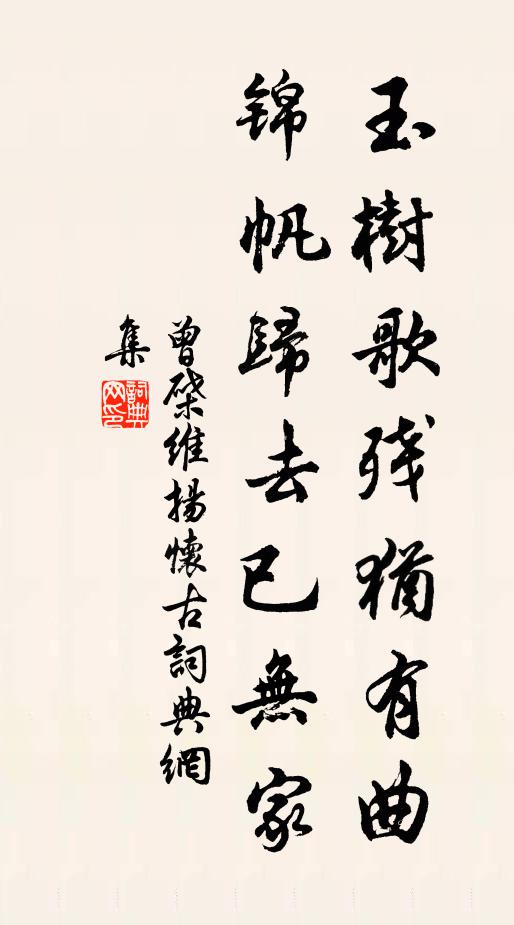 玉樹歌殘猶有曲
錦帆歸去已無家
曾棨維揚懷古詞典網
集
詞典
网印